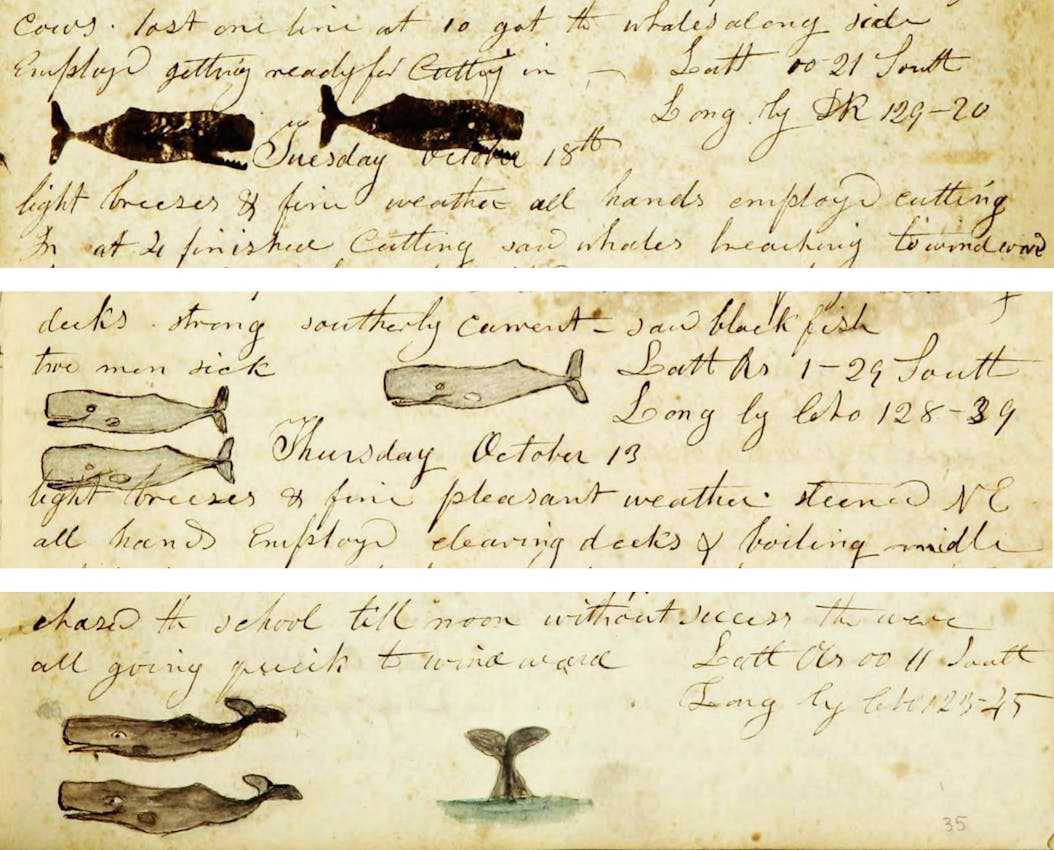 Cows. lost one line at 10 got th whales along side
Employd getting ready for Cutting in — Latt 00 21 South
Long by DR 129-20
Tuesday October 18th
light breezes & fine weather all hands employd cutting
In at 4 finished Cutting saw whales breaching to windward
decks. strong southerly current - saw black fish
two men sick Latt 1-29 South
Long by 128-39
Thursday October 13
light breezes & fine pleasant weather steered NE
all hands Employd clearing decks & boiling middle
chased th school till noon without success the were
all going quick to windward Latt 00 11 South
Long by 123-45
35